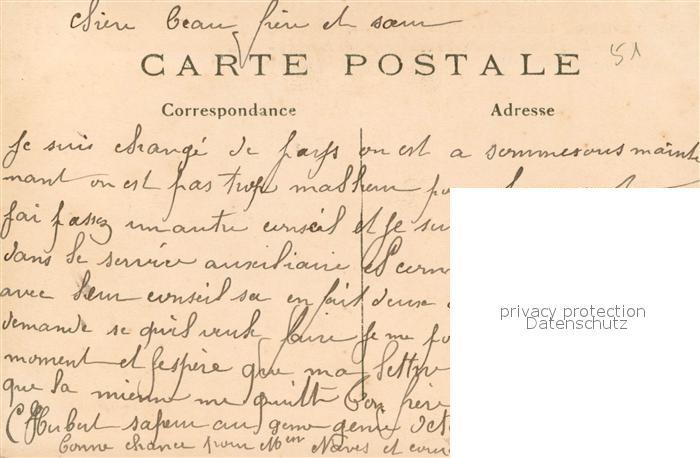 Chère beau frère et sœur
51
CARTE POSTALE
Correspondance Adresse
Je suis changé de pays on est a sommesous mainte
nant on est pas trop malheur
fai passez un autre conseil et Je
dans le service auxiliaire et
avec leur conseil sa en fait deux
demande se quils veule faire Je me
moment et Jespère que ma lettre
que la mienne me quitte Ton frère
Hubert sapeur au genie
bonne chance pour Naves et
privacy protection
Datenschutz